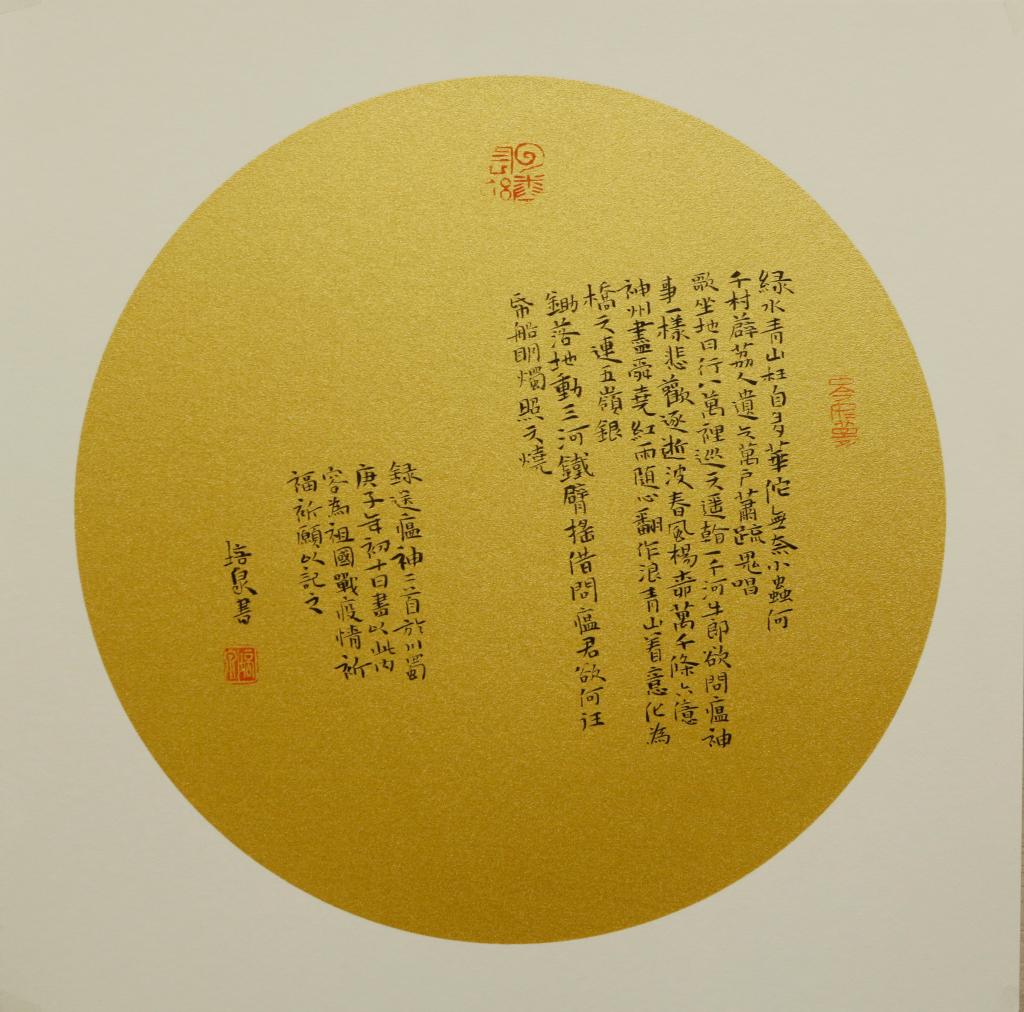 緑水青山枉自多華佗無奈小蟲何
千村薜荔人遺矢萬户蕭疏鬼唱
歌坐地日行八萬裡巡天遥看一千河牛郎欲問瘟神
事一樣悲歡逐逝波春風楊柳萬千條六億
神州盡舜堯紅雨隨心翻作浪青山着意化為
橋天連五嶺銀
鋤落地動三河鐵臂搖借問瘟君欲何往
帋船明燭照天燒
録送瘟神二首於川蜀
庚子年初十日書以此内
容為祖國戰疫情祈
福祈願以記之
培泉書